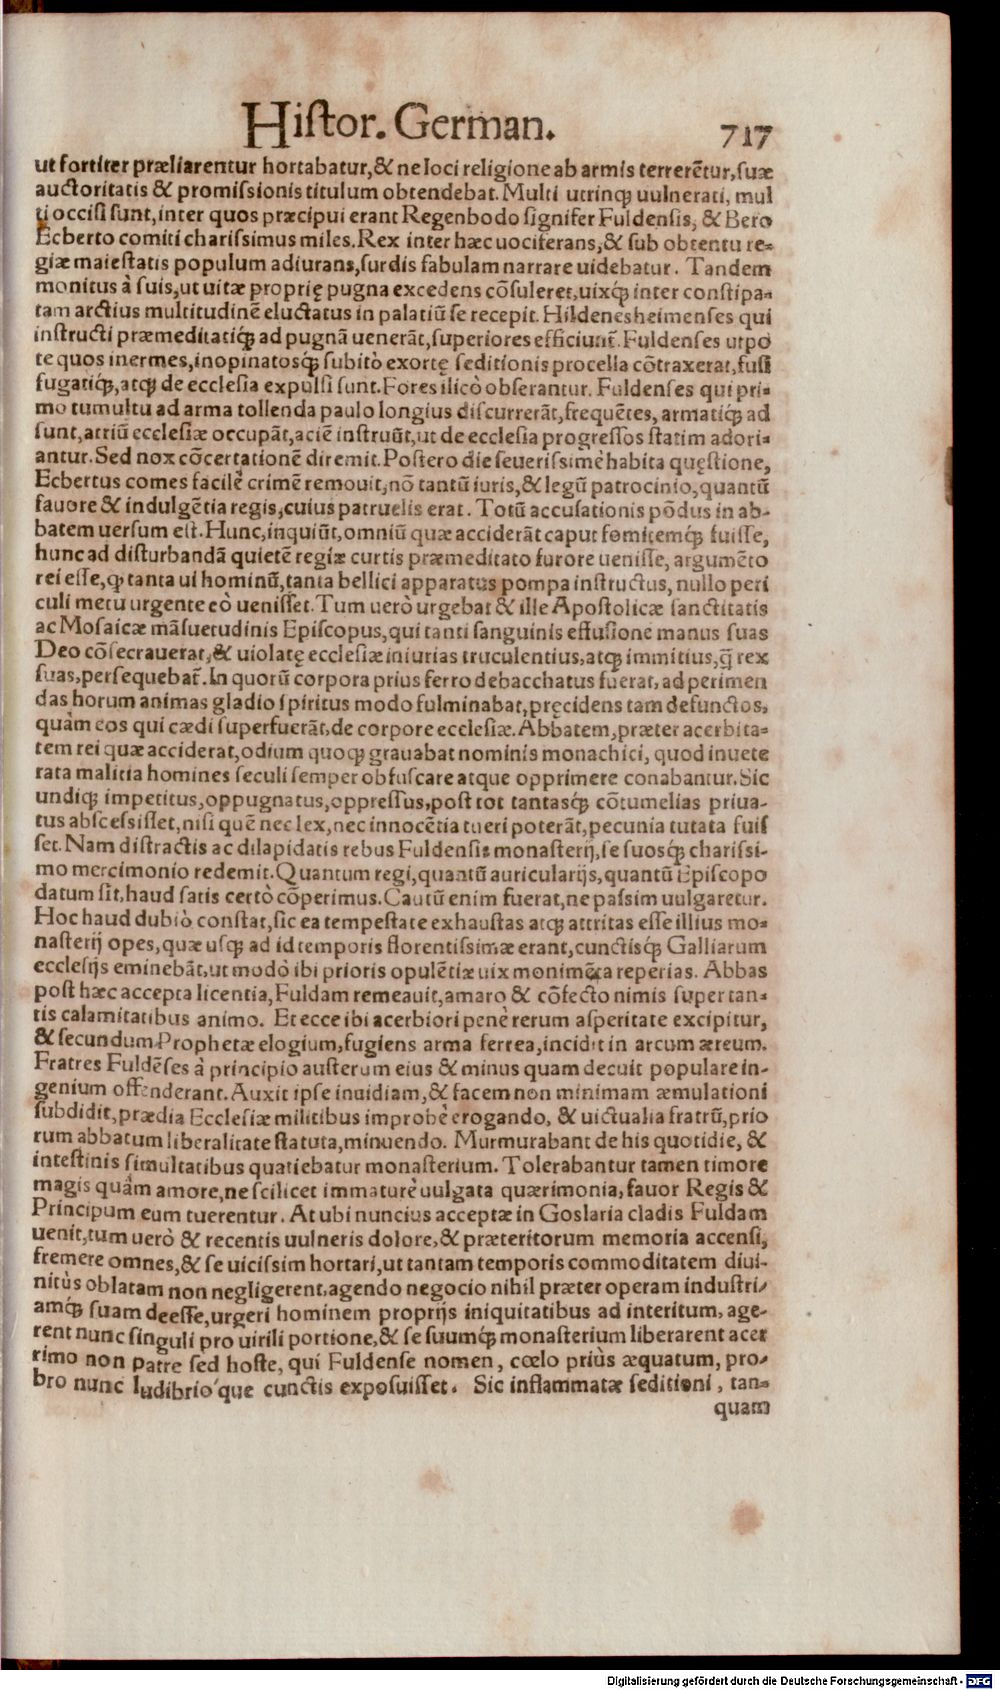 Histor. German. 717
ut fortiter præliarentur hortabatur,& ne loci religione ab armis terrerētur,suæ
auctoritatis & promissionis titulum obtendebat. Multi utrinq; uulnerati, mul
ti occisi sunt, inter quos præcipui erant Regenbodo signifer Fuldensis, & Bero
Ecberto comiti charissimus miles. Rex inter hæc uociferans,& sub obtentu re-
giæ maiestatis populum adiurans,surdis fabulam narrare uidebatur. Tandem
monitus à suis,ut uitæ proprię pugna excedens cōsuleret,uixq; inter constipa-
tam arctius multitudinē eluctatus in palatiū se recepit. Hildenesheimenses qui
instructi præmeditatiq; ad pugnā uenerāt,superiores efficiunt̃. Fuldenses utpo
te quos inermes,inopinatosq; subitò exortę seditionis procella cōtraxerat,fusi
fugatiq;,atq; de ecclesia expulsi sunt. Fores ilicò obserantur. Fuldenses qui pri-
mo tumultu ad arma tollenda paulo longius discurrerāt,frequētes, armatiq; ad
sunt,atriū ecclesiæ occupāt,aciē instruūt,ut de ecclesia progressos statim adori-
antur. Sed nox cōcertationē diremit. Postero die seuerissimè habita quęstione,
Ecbertus comes facilè crimē remouit,nō tantū iuris,& legū patrocinio,quantū
fauore & indulgētia regis,cuius patruelis erat. Totū accusationis pōdus in ab-
batem uersum est. Hunc,inquiūt,omniū quæ acciderāt caput fomitemq; fuisse,
hunc ad disturbandā quietē regiæ curtis præmeditato furore uenisse, argumēto
rei esse, ꝙ tanta ui hominū,tanta bellici apparatus pompa instructus, nullo peri
culi metu urgente eò uenisset. Tum uerò urgebat & ille Apostolicæ sanctitatis
ac Mosaicæ māsuetudinis Episcopus,qui tanti sanguinis effusione manus suas
Deo cōsecrauerat,& uiolatę ecclesiæ iniurias truculentius,atq; immitius,q̃ rex
suas,persequebat̃. In quorū corpora prius ferro debacchatus fuerat,ad perimen
das horum animas gladio spiritus modo fulminabat,pręcidens tam defunctos,
quàm eos qui cædi superfuerāt,de corpore ecclesiæ. Abbatem,præter acerbita-
tem rei quæ acciderat,odium quoq; grauabat nominis monachici, quod inuete
rata malitia homines seculi semper obfuscare atque opprimere conabantur. Sic
undiq; impetitus,oppugnatus,oppressus,post tot tantasq; cōtumelias priua-
tus abscessisset,nisi quē nec lex,nec innocētia tueri poterāt,pecunia tutata fuis
set. Nam distractis ac dilapidatis rebus Fuldensis monasterij,se suosq; charissi-
mo mercimonio redemit. Quantum regi,quantū auricularijs,quantū Episcopo
datum sit,haud satis certò cōperimus. Cautū enim fuerat,ne passim uulgaretur.
Hoc haud dubiò constat,sic ea tempestate exhaustas atq; attritas esse illius mo-
nasterij opes,quæ usq; ad id temporis florentissimæ erant,cunctisq; Galliarum
ecclesijs eminebāt,ut modò ibi prioris opulētiæ uix monimēta reperias. Abbas
post hæc accepta licentia,Fuldam remeauit,amaro & cōfecto nimis super tan-
tis calamitatibus animo. Et ecce ibi acerbiori penè rerum asperitate excipitur,
& secundum Prophetæ elogium,fugiens arma ferrea,incidit in arcum æreum.
Fratres Fuldēses à principio austerum eius & minus quam decuit populare in-
genium offenderant. Auxit ipse inuidiam,& facem non minimam æmulationi
subdidit,prædia Ecclesiæ militibus improbè erogando, & uictualia fratrū,prio
rum abbatum liberalitate statuta,minuendo. Murmurabant de his quotidie, &
intestinis simultatibus quatiebatur monasterium. Tolerabantur tamen timore
magis quàm amore,ne scilicet immaturè uulgata quærimonia,fauor Regis &
Principum eum tuerentur. At ubi nuncius acceptæ in Goslaria cladis Fuldam
uenit,tum uerò & recentis uulneris dolore,& præteritorum memoria accensi,
fremere omnes,& se uicissim hortari,ut tantam temporis commoditatem diui-
nitùs oblatam non negligerent,agendo negocio nihil præter operam industri-
amq; suam deesse,urgeri hominem proprijs iniquitatibus ad interitum, age-
rent nunc singuli pro uirili portione,& se suumq; monasterium liberarent acer
rimo non patre sed hoste, qui Fuldense nomen, cœlo priùs æquatum, pro-
bro nunc ludibrio que cunctis exposuisset. Sic inflammatæ seditioni, tan-
quam
Digitalisierung gefördert durch die Deutsche Forschungsgemeinschaft - DFG